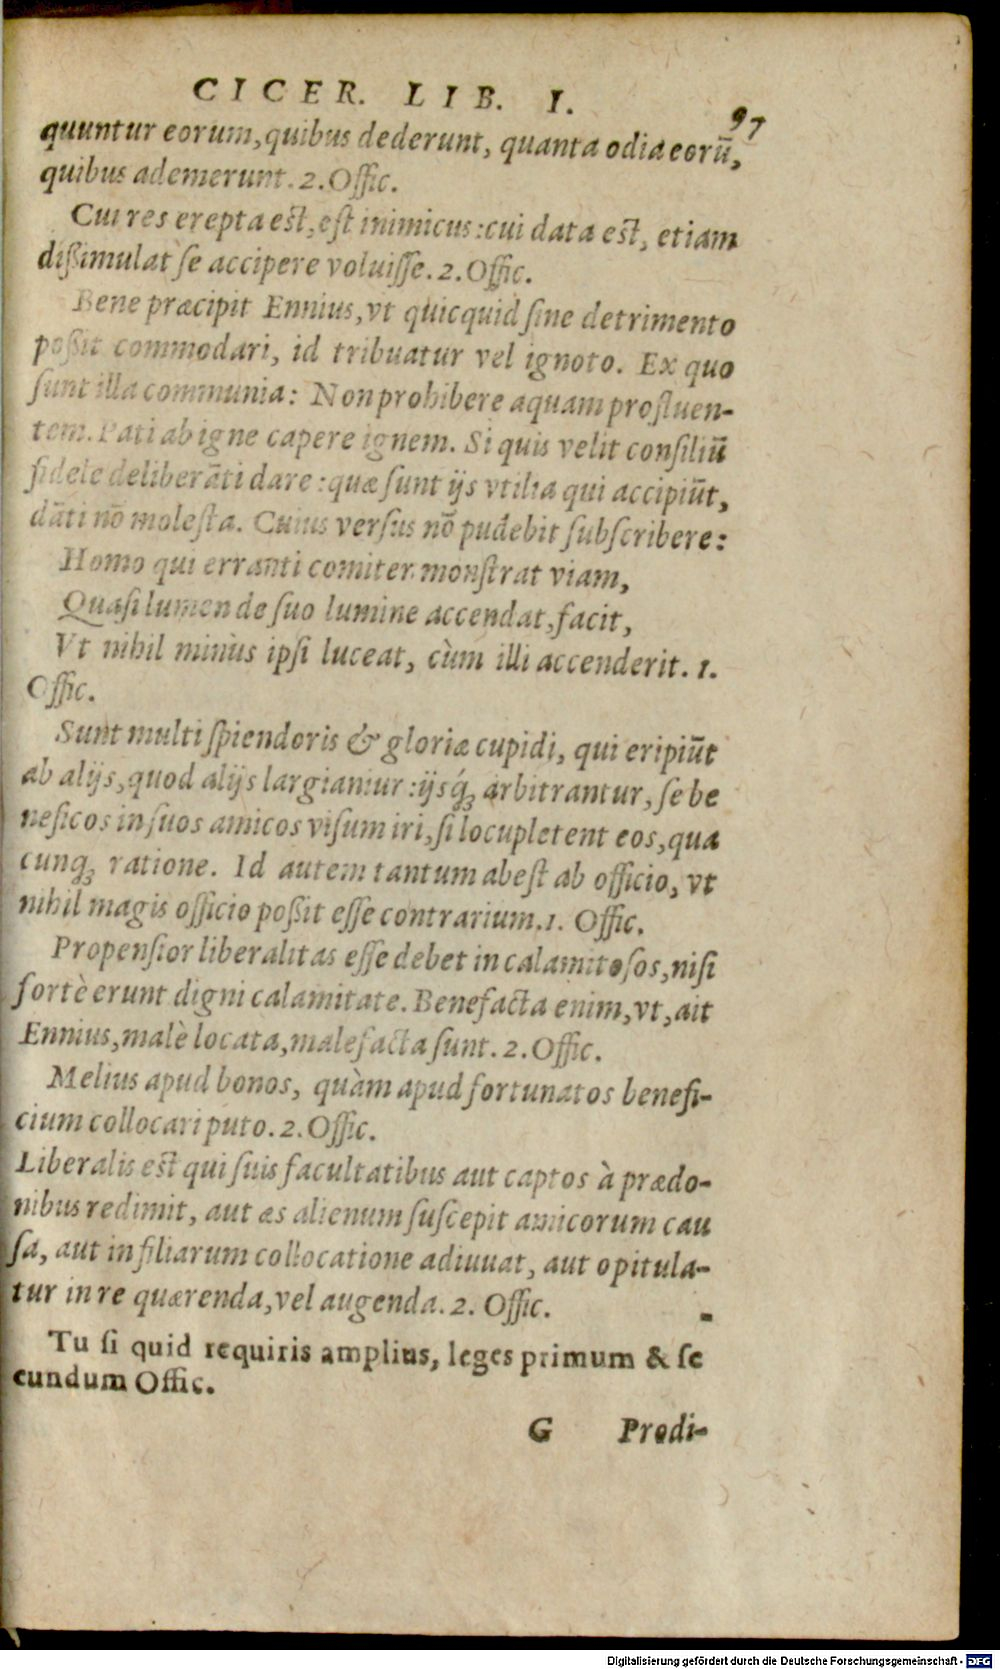 CICER. LIB. I. 97
quuntur eorum, quibus dederunt, quanta odia eorū,
quibus ademerunt. 2. Offic.
Cui res erepta est, est inimicus: cui data est, etiam
dißimulat se accipere voluisse. 2. Offic.
Bene præcipit Ennius, vt quicquid sine detrimento
poßit commodari, id tribuatur vel ignoto. Ex quo
sunt illa communia: Non prohibere aquam profluen-
tem. Pati ab igne capere ignem. Si quis velit consiliū
fidele deliberāti dare: quæ sunt ijs vtilia qui accipiūt,
dāti nō molesta. Cuius versus nō pudebit subscribere:
Homo qui erranti comiter monstrat viam,
Quasi lumen de suo lumine accendat, facit,
Vt nihil minùs ipsi luceat, cùm illi accenderit. 1.
Offic.
Sunt multi splendoris & gloriæ cupidi, qui eripiūt
ab alijs, quod alijs largiantur: ijsq́ꝫ arbitrantur, se be
neficos in suos amicos visum iri, si locupletent eos, qua
cunqꝫ ratione. Id autem tantum abest ab officio, vt
nihil magis officio poßit esse contrarium. 1. Offic.
Propensior liberalitas esse debet in calamitosos, nisi
fortè erunt digni calamitate. Benefacta enim, vt, ait
Ennius, malè locata, malefacta sunt. 2. Offic.
Melius apud bonos, quàm apud fortunatos benefi-
cium collocari puto. 2. Offic.
Liberalis est qui suis facultatibus aut captos à prædo-
nibus redimit, aut æs alienum suscepit amicorum cau
sa, aut in filiarum collocatione adiuuat, aut opitula-
tur in re quærenda, vel augenda. 2. Offic.
Tu si quid requiris amplius, leges primum & se
cundum Offic.
G Prodi-
Digitalisierung gefördert durch die Deutsche Forschungsgemeinschaft - DFG